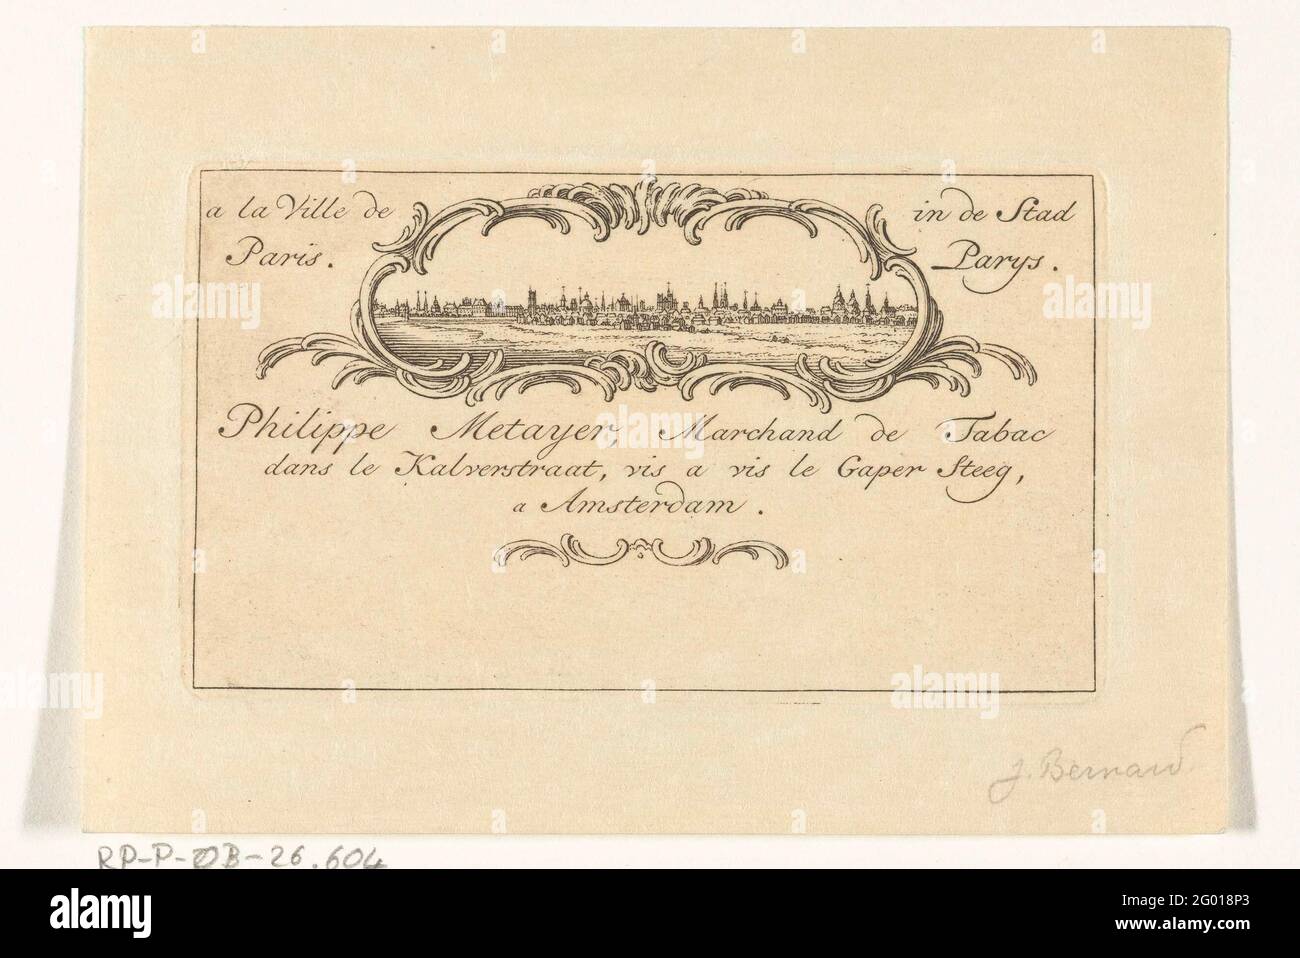 a la Ville de
Paris.
in de Stad
Parys.
Philippe Metayer, Marchand de Tabac
dans le Kalverstraat, vis a vis le Gaper Steeg,
a Amsterdam.
J. Bernard
RP-P-OB-26.604
alamy
Image ID: 2G018P3
www.alamy.com